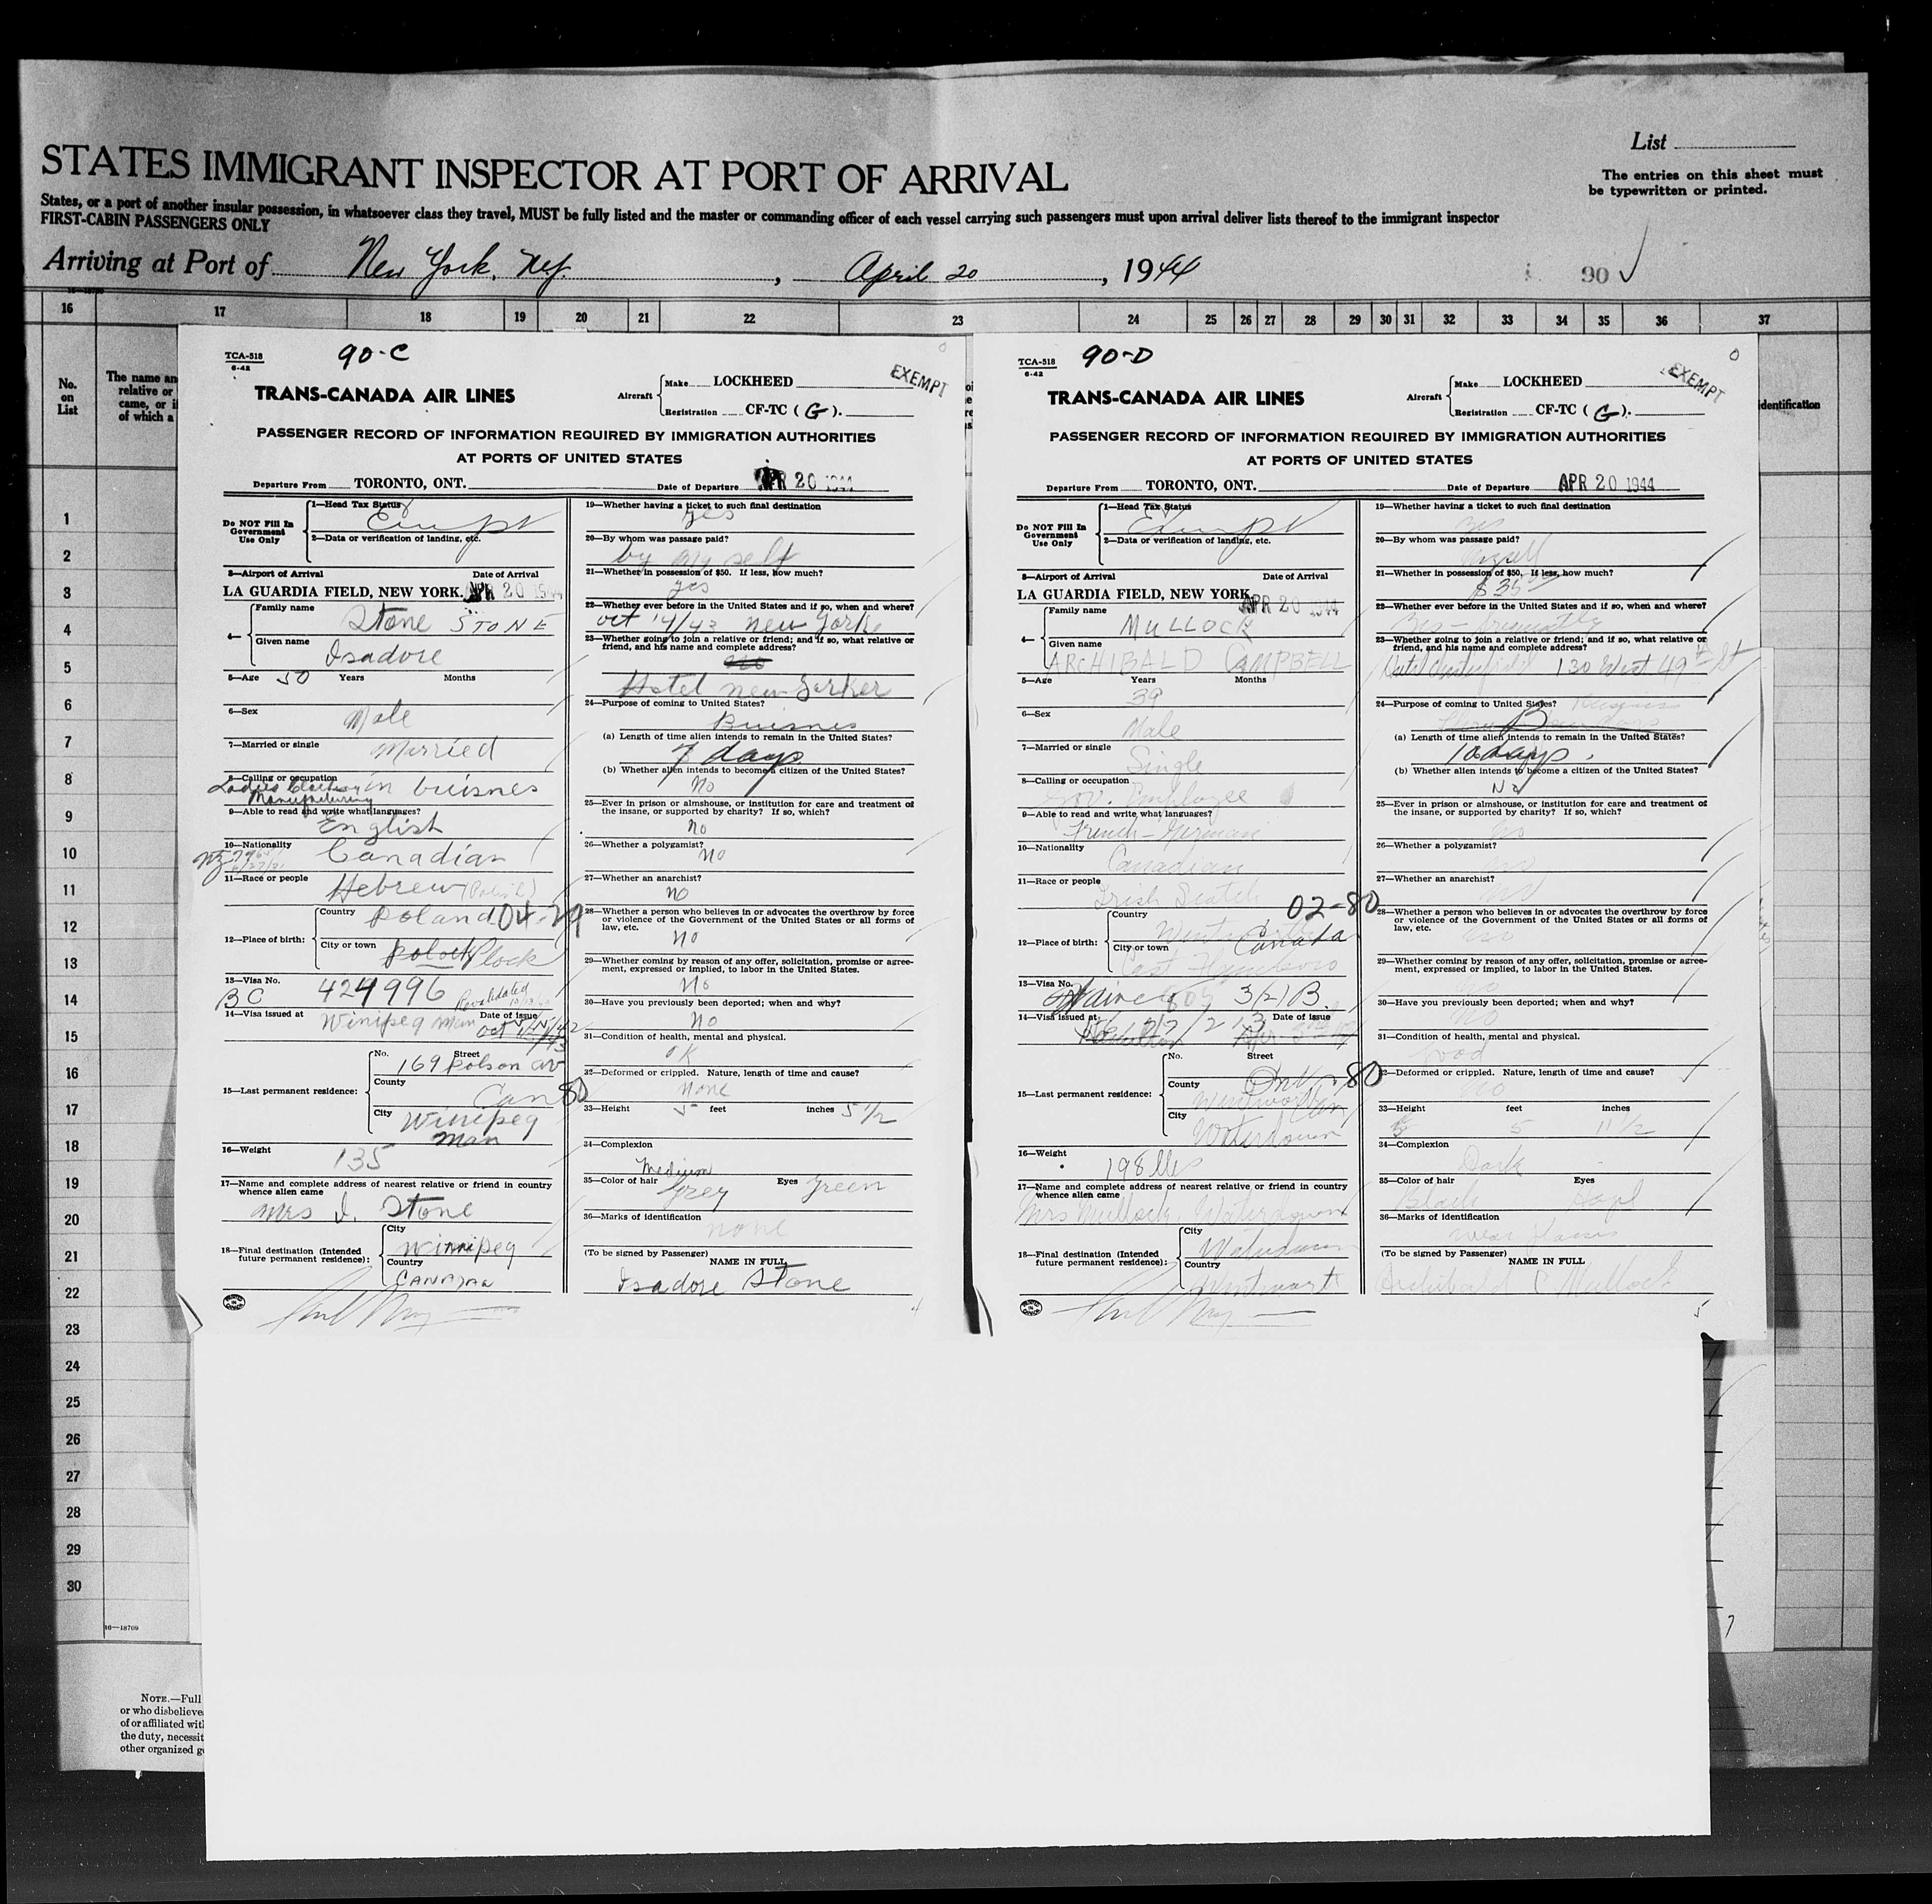 List
STATES IMMIGRANT INSPECTOR AT PORT OF ARRIVAL
The entries on this sheet must
be typewritten or printed.
States, or a port of another insular possession, in whatsoever class they travel, MUST be fully listed and the master or commanding officer of each vessel carrying such passengers must upon arrival deliver lists thereof to the immigrant inspector
FIRST-CABIN PASSENGERS ONLY
Arriving at Port of New York, NY. , April 20 , 1944
90 ✓
16 17 18 19 20 21 22 23 24 25 26 27 28 29 30 31 32 33 34 35 36 37
No.
on
List
The name an
relative or
came, or i
of which a
identification
1
2
3
4
5
6
7
8
9
10
11
12
13
14
15
16
17
18
19
20
21
22
23
24
25
26
27
28
29
30
16—18709
NOTE.—Full
or who disbelieve
of or affiliated wit
the duty, necessit
other organized g
TCA-518
6-42
90-C
EXEMPT
TRANS-CANADA AIR LINES
Aircraft
Make LOCKHEED
Registration CF-TC (G).
PASSENGER RECORD OF INFORMATION REQUIRED BY IMMIGRATION AUTHORITIES
AT PORTS OF UNITED STATES
Departure From TORONTO, ONT. Date of Departure APR 20 1944
Do NOT Fill In
Government
Use Only
1—Head Tax Status
Exmpt
2—Data or verification of landing, etc.
3—Airport of Arrival Date of Arrival
LA GUARDIA FIELD, NEW YORK. APR 20 1944
4—
Family name
Stone STONE
Given name
Isadore
5—Age 50 Years Months
6—Sex
Male
7—Married or single
Married
8—Calling or occupation
Ladies in buisnes
Manufacturing
9—Able to read and write what languages?
English
10—Nationality
Canadian
11—Race or people
Hebrew (Polish)
12—Place of birth:
Country
Poland 04-29
City or town
Polock Plock
13—Visa No.
BC 424996 Revalidated
14—Visa issued at Date of issue
Winipeg Man Oct
15—Last permanent residence:
No. Street
169 Polson av
County
Can 80
City
Winipeg
Man
16—Weight
135
17—Name and complete address of nearest relative or friend in country
whence alien came
Mrs I. Stone
18—Final destination (Intended
future permanent residence):
City
Winnipeg
Country
CANADA
19—Whether having a ticket to such final destination
yes
20—By whom was passage paid?
by my self
21—Whether in possession of $50. If less, how much?
yes
22—Whether ever before in the United States and if so, when and where?
oct 14/43 New York
23—Whether going to join a relative or friend; and if so, what relative or
friend, and his name and complete address?
no
Hotel New Yorker
24—Purpose of coming to United States?
Buisnes
(a) Length of time alien intends to remain in the United States?
7 days
(b) Whether alien intends to become a citizen of the United States?
No
25—Ever in prison or almshouse, or institution for care and treatment of
the insane, or supported by charity? If so, which?
no
26—Whether a polygamist?
no
27—Whether an anarchist?
no
28—Whether a person who believes in or advocates the overthrow by force
or violence of the Government of the United States or all forms of
law, etc.
no
29—Whether coming by reason of any offer, solicitation, promise or agree-
ment, expressed or implied, to labor in the United States.
no
30—Have you previously been deported; when and why?
no
31—Condition of health, mental and physical.
OK
32—Deformed or crippled. Nature, length of time and cause?
none
33—Height 5 feet inches 5 1/2
34—Complexion
Medium
35—Color of hair Grey Eyes green
36—Marks of identification
none
(To be signed by Passenger)
NAME IN FULL
Isadore Stone
TCA-518
6-42
90-D
EXEMPT
TRANS-CANADA AIR LINES
Aircraft
Make LOCKHEED
Registration CF-TC (G).
PASSENGER RECORD OF INFORMATION REQUIRED BY IMMIGRATION AUTHORITIES
AT PORTS OF UNITED STATES
Departure From TORONTO, ONT. Date of Departure APR 20 1944
Do NOT Fill In
Government
Use Only
1—Head Tax Status
Exmpt
2—Data or verification of landing, etc.
3—Airport of Arrival Date of Arrival
LA GUARDIA FIELD, NEW YORK. APR 20 1944
4—
Family name
MULLOCK
Given name
ARCHIBALD CAMPBELL
5—Age Years Months
39
6—Sex
Male
7—Married or single
Single
8—Calling or occupation
Gov. Employee
9—Able to read and write what languages?
French - German
10—Nationality
Canadian
11—Race or people
Irish Scotch
12—Place of birth:
Country
02-80
Canada
City or town
East Flamboro
13—Visa No.
3(2)B
14—Visa issued at Date of issue
15—Last permanent residence:
No. Street
County
Ont. 80
Wentworth Can
City
Waterdown
16—Weight
198 lbs
17—Name and complete address of nearest relative or friend in country
whence alien came
Mrs Mullock, Waterdown
18—Final destination (Intended
future permanent residence):
City
Waterdown
Country
19—Whether having a ticket to such final destination
20—By whom was passage paid?
myself
21—Whether in possession of $50. If less, how much?
$35
22—Whether ever before in the United States and if so, when and where?
23—Whether going to join a relative or friend; and if so, what relative or
friend, and his name and complete address?
130 West 49th St
24—Purpose of coming to United States?
(a) Length of time alien intends to remain in the United States?
10 days
(b) Whether alien intends to become a citizen of the United States?
No
25—Ever in prison or almshouse, or institution for care and treatment of
the insane, or supported by charity? If so, which?
no
26—Whether a polygamist?
no
27—Whether an anarchist?
no
28—Whether a person who believes in or advocates the overthrow by force
or violence of the Government of the United States or all forms of
law, etc.
no
29—Whether coming by reason of any offer, solicitation, promise or agree-
ment, expressed or implied, to labor in the United States.
no
30—Have you previously been deported; when and why?
no
31—Condition of health, mental and physical.
Good
32—Deformed or crippled. Nature, length of time and cause?
no
33—Height feet inches
5 11 1/2
34—Complexion
Dark
35—Color of hair Eyes
Black Hazel
36—Marks of identification
wear glasses
(To be signed by Passenger)
NAME IN FULL
Archibald C Mullock